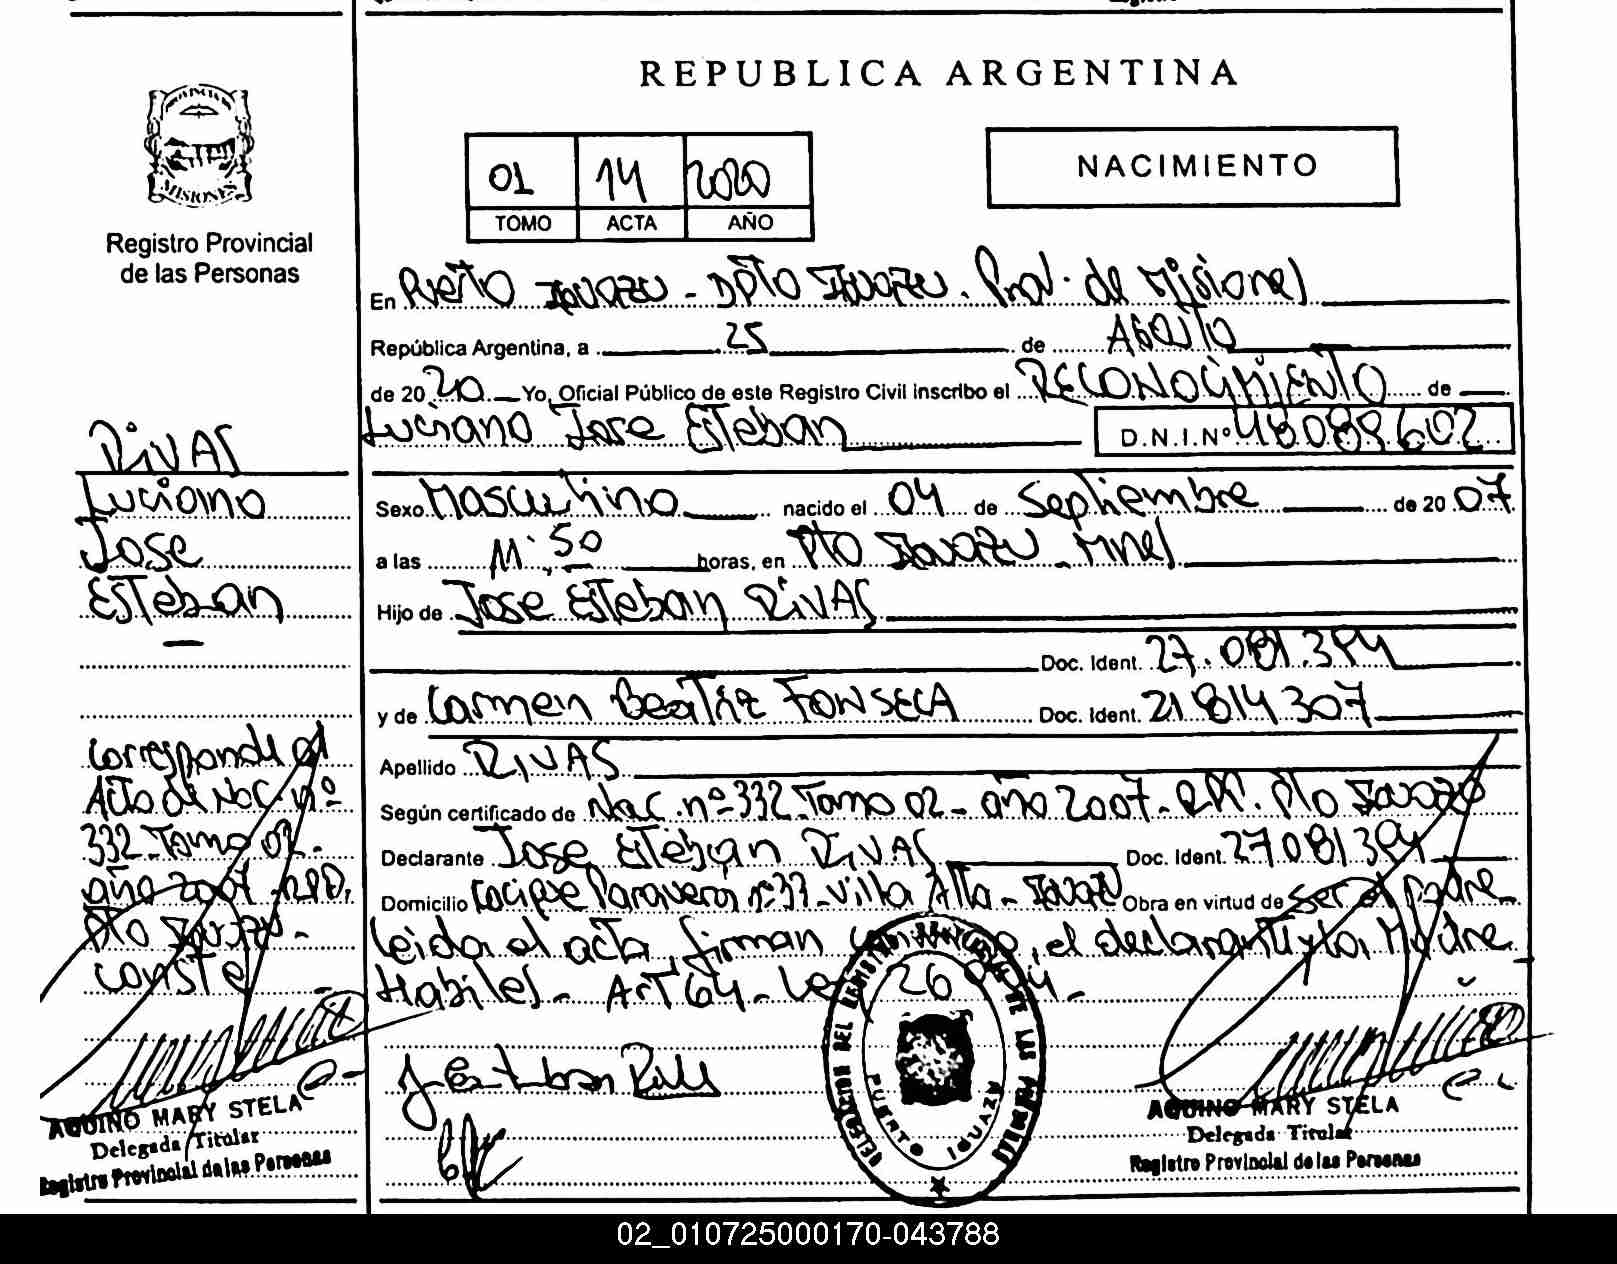 REPUBLICA ARGENTINA
PROVINCIA
MISIONES
Registro Provincial
de las Personas
01 14 2020
TOMO ACTA AÑO
NACIMIENTO
En Puerto Iguazu - DPTO Iguazu. Prov. de Misiones
República Argentina, a 25 de AGOSTO
de 2020 Yo, Oficial Público de este Registro Civil inscribo el RECONOCIMIENTO de
Luciano Jose Esteban D.N.I.Nº 48089602
Sexo Masculino nacido el 04 de Septiembre de 2007
a las 11:50 horas, en Pto Iguazu Mnes
Hijo de Jose Esteban RIVAS
Doc. Ident. 27.081.394
y de Carmen Beatriz FONSECA Doc. Ident. 21814307
Apellido RIVAS
Según certificado de Nac. nº 332 Tomo 02 - año 2007 - Pto Iguazu
Declarante Jose Esteban RIVAS Doc. Ident. 27081394
Domicilio Cacique nº 33 - Villa Alta - Iguazu Obra en virtud de Ser el Padre
Leida el acta, firman conmigo, el declarante y la Madre
Habiles - Art 64 - Ley 26
RIVAS
Luciano
Jose
Esteban
Corresponde al
Acta de Nac nº
332 - Tomo 02 -
año 2007 RPP.
Pto Iguazu -
Conste
AQUINO MARY STELA
Delegada Titular
Registro Provincial de las Personas
J Esteban Rivas
DELEGACION DEL REGISTRO PROVINCIAL DE LAS PERSONAS
PUERTO IGUAZU
AQUINO MARY STELA
Delegada Titular
Registro Provincial de las Personas
02_010725000170-043788